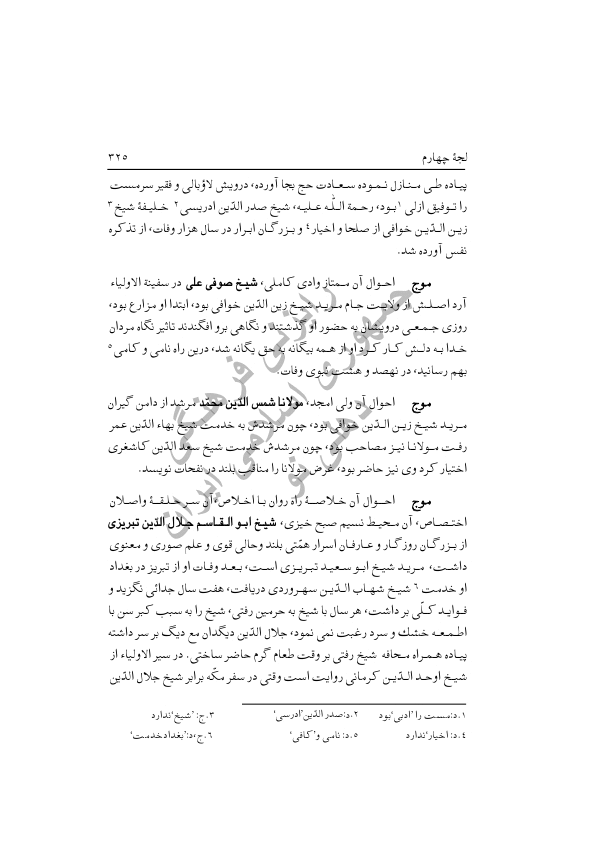 لجهٔ چهارم ۳۲۵
پیاده طی منازل نموده سعادت حج بجا آورده، درویش لاؤبالی و فقیر سرمست
را توفیق ازلی ۱بود، رحمة اللّٰه علیه، شیخ صدر الدّین ادریسی۲ خلیفهٔ شیخ۳
زین الدّین خوافی از صلحا و اخیار۴ و بزرگان ابرار در سال هزار وفات، از تذکره
نفس آورده شد.
موج احوال آن ممتاز وادی کاملی، شیخ صوفی علی در سفینة الاولیاء
آرد اصلش از ولایت جام مرید شیخ زین الدّین خوافی بود، ابتدا او مزارع بود،
روزی جمعی درویشان به حضور او گذشتند و نگاهی برو افگندند تاثیر نگاه مردان
خدا به دلش کار کرد او از همه بیگانه به حق یگانه شد، درین راه نامی و کامی۵
بهم رسانید، در نهصد و هشت نبوی وفات.
موج احوال آن ولی امجد، مولانا شمس الدّین محمّد مرشد از دامن گیران
مرید شیخ زین الدّین خوافی بود، چون مرشدش به خدمت شیخ بهاء الدّین عمر
رفت مولانا نیز مصاحب بود، چون مرشدش خدمت شیخ سعد الدّین کاشغری
اختیار کرد وی نیز حاضر بود، غرض مولانا را مناقب بلند در نفحات نویسد.
موج احوال آن خلاصهٔ راه روان با اخلاص، آن سر حلقهٔ واصلان
اختصاص، آن محیط نسیم صبح خیزی، شیخ ابو القاسم جلال الدّین تبریزی
از بزرگان روزگار و عارفان اسرار همّتی بلند وحالی قوی و علم صوری و معنوی
داشت، مرید شیخ ابو سعید تبریزی است، بعد وفات او از تبریز در بغداد
او خدمت ۶ شیخ شهاب الدّین سهروردی دریافت، هفت سال جدائی نگزید و
فواید کلّی بر داشت، هر سال با شیخ به حرمین رفتی، شیخ را به سبب کبر سن با
اطعمه خشك و سرد رغبت نمی نمود، جلال الدّین دیگدان مع دیگ بر سر داشته
پیاده همراه محافه شیخ رفتی بر وقت طعام گرم حاضر ساختی. در سیر الاولیاء از
شیخ اوحد الدّین کرمانی روایت است وقتی در سفر مکّه برابر شیخ جلال الدّین
۱.د:مست را 'ادبی'بود ۲.د:صدر الدّین'ادرسی' ۳.ج: 'شیخ'ندارد
۴.د: اخیار'ندارد ۵.د: نامی و'کافی' ۶.ج،د:'بغدادخدمت'
رایزنی فرهنگی
جمهوری اسلامی ایران
دهلی نو